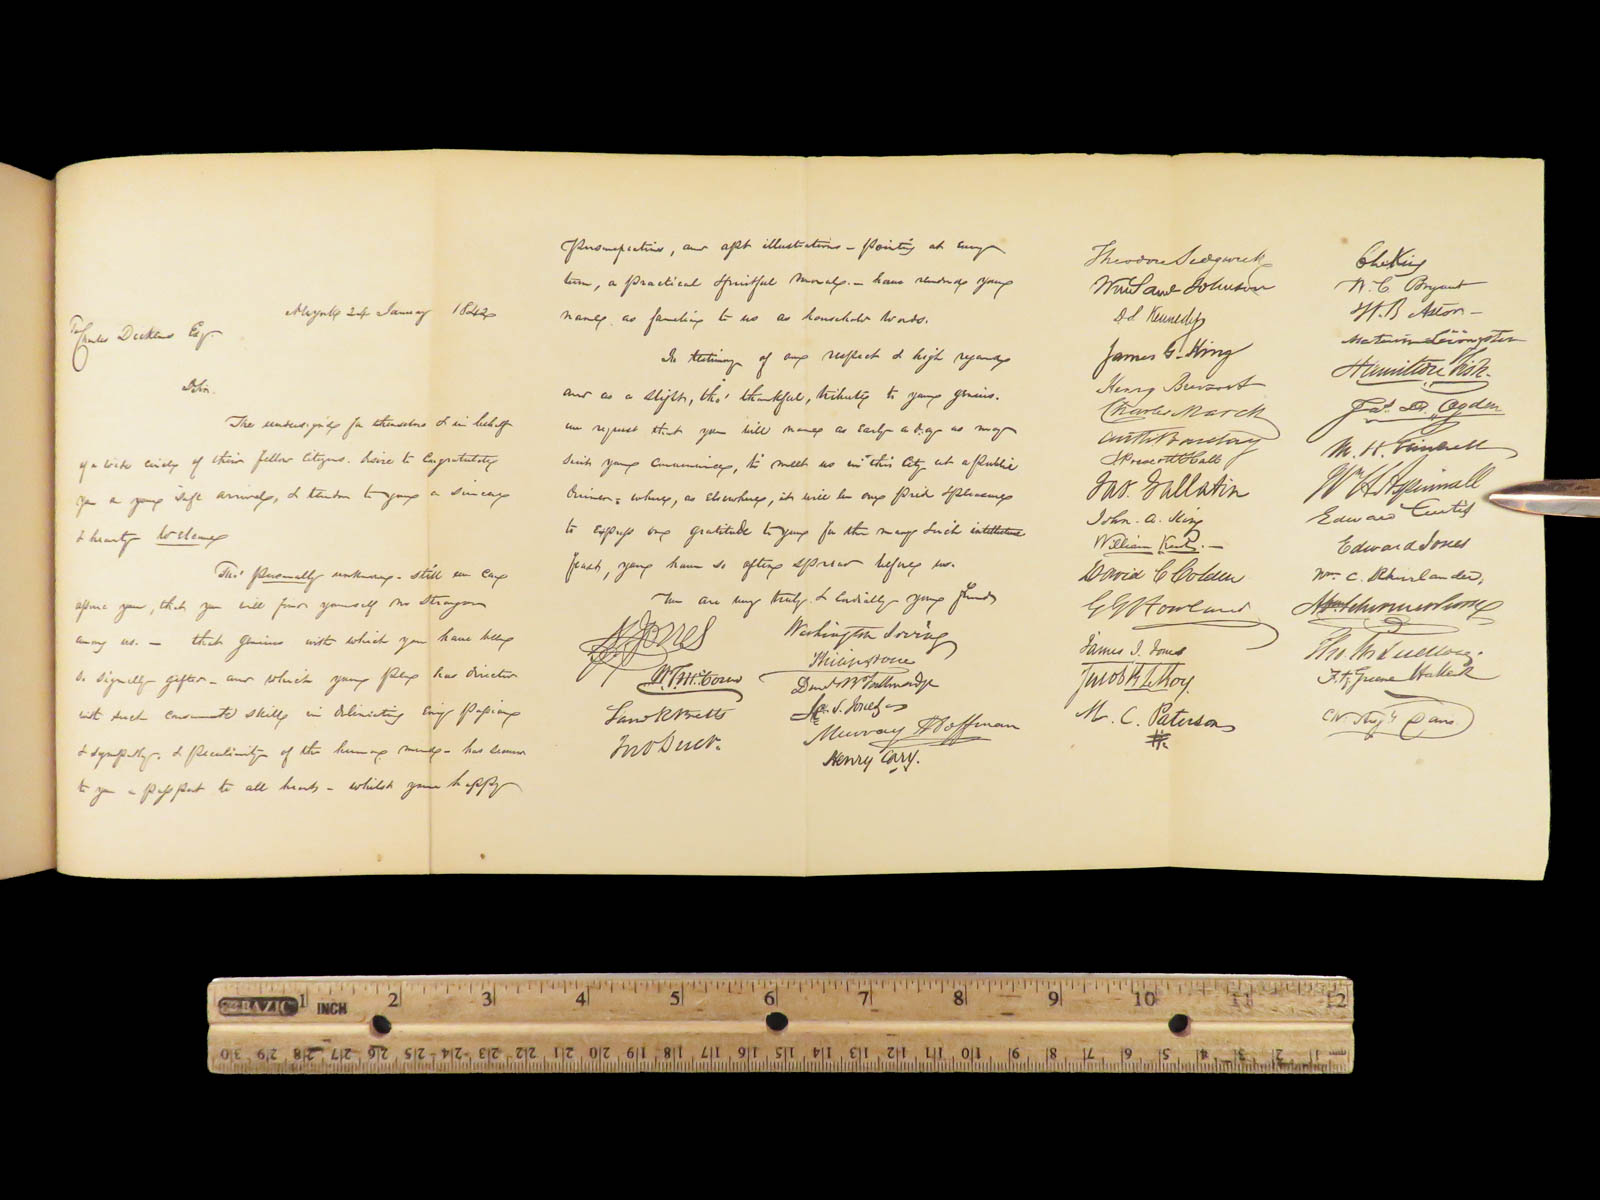 New York 24 January 1842
To Charles Dickens Esq.
Sir.
The undersigned for themselves & in behalf
of a wide circle of their fellow citizens. desire to congratulate
you on your safe arrival, & tender to you a sincere
& hearty welcome
Tho' personally unknown - still we can
assure you, that you will find yourself no stranger
among us. - that genius with which you have been
so signally gifted - and which your pen has directed
with such consummate skill in delineating every passion
& sympathy. & peculiarity of the human mind - has secured
to you a passport to all hearts - whilst your happy
personifications, and apt illustrations - pointing at every
turn, a practical & fruitful moral - have rendered your
name as familiar to us as household words.
In testimony of our respect & high regard
and as a slight, tho' thankful, tribute to your genius.
we request that you will name as early a day as may
suit your convenience, to meet us in this city at a public
dinner = where, as elsewhere, it will be our pride & pleasure
to express our gratitude to you for the many rich intellectual
feasts, you have so often spread before us.
We are very truly & cordially your friends
Jones
Washington Irving
Philip Hone
David
Murray Hoffman
Henry Cary.
Theodore Sedgwick
Wm Saml Johnson
D S Kennedy
James G. King
Henry Brevoort
Charles March
J Prescott Hall
Jas. Gallatin
John. A. King
William Kent. -
David C Colden
G G Howland
James I. Jones
Jacob R LeRoy.
M. C. Paterson
Chs King
W. C. Bryant
W. B. Astor -
Maturin Livingston
Hamilton Fish.
Jas. D. Ogden
M. H. Grinnell
Wm H Aspinwall
Edward Curtis
Edward Jones
Wm. C. Rhinelander,
A Schermerhorn
Tho W Ludlow.
Fitz Greene Halleck
C Aug Davis
BAZIC
INCH
1 2 3 4 5 6 7 8 9 10 11 12
30 29 28 27 26 25 24 23 22 21 20 19 18 17 16 15 14 13 12 11 10 9 8 7 6 5 4 3 2 1